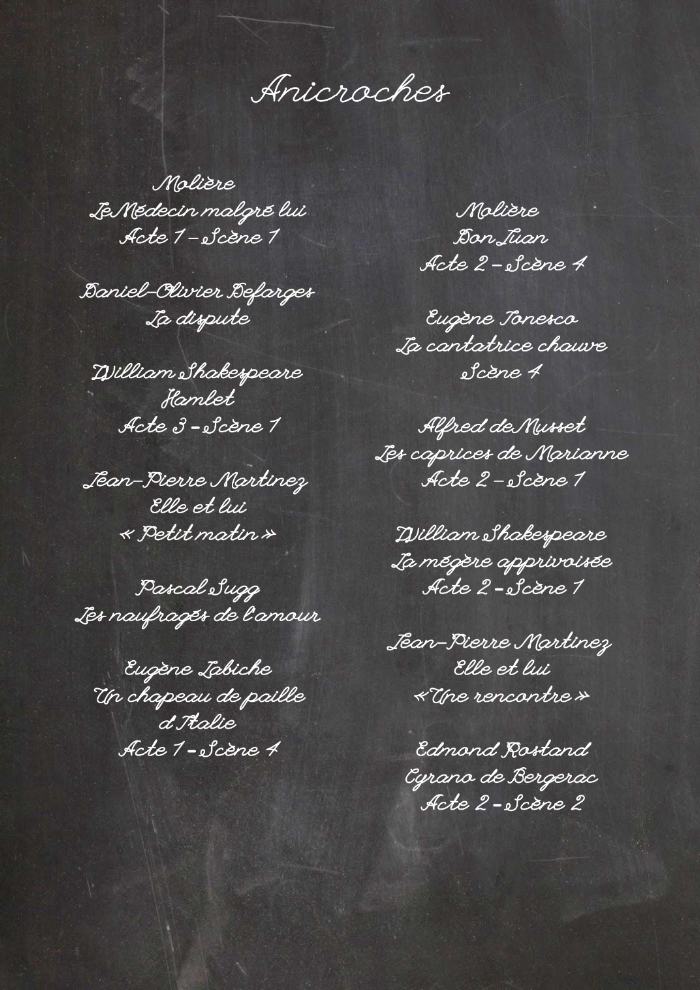 Anicroches
Molière
Le Médecin malgré lui
Acte 1 - Scène 1
Daniel-Olivier Defarges
La dispute
William Shakespeare
Hamlet
Acte 3 - Scène 1
Jean-Pierre Martinez
Elle et lui
« Petit matin »
Pascal Sugg
Les naufragés de l'amour
Eugène Labiche
Un chapeau de paille
d'Italie
Acte 1 - Scène 4
Molière
Don Juan
Acte 2 - Scène 4
Eugène Ionesco
La cantatrice chauve
Scène 4
Alfred de Musset
Les caprices de Marianne
Acte 2 - Scène 1
William Shakespeare
La mégère apprivoisée
Acte 2 - Scène 1
Jean-Pierre Martinez
Elle et lui
« Une rencontre »
Edmond Rostand
Cyrano de Bergerac
Acte 2 - Scène 2